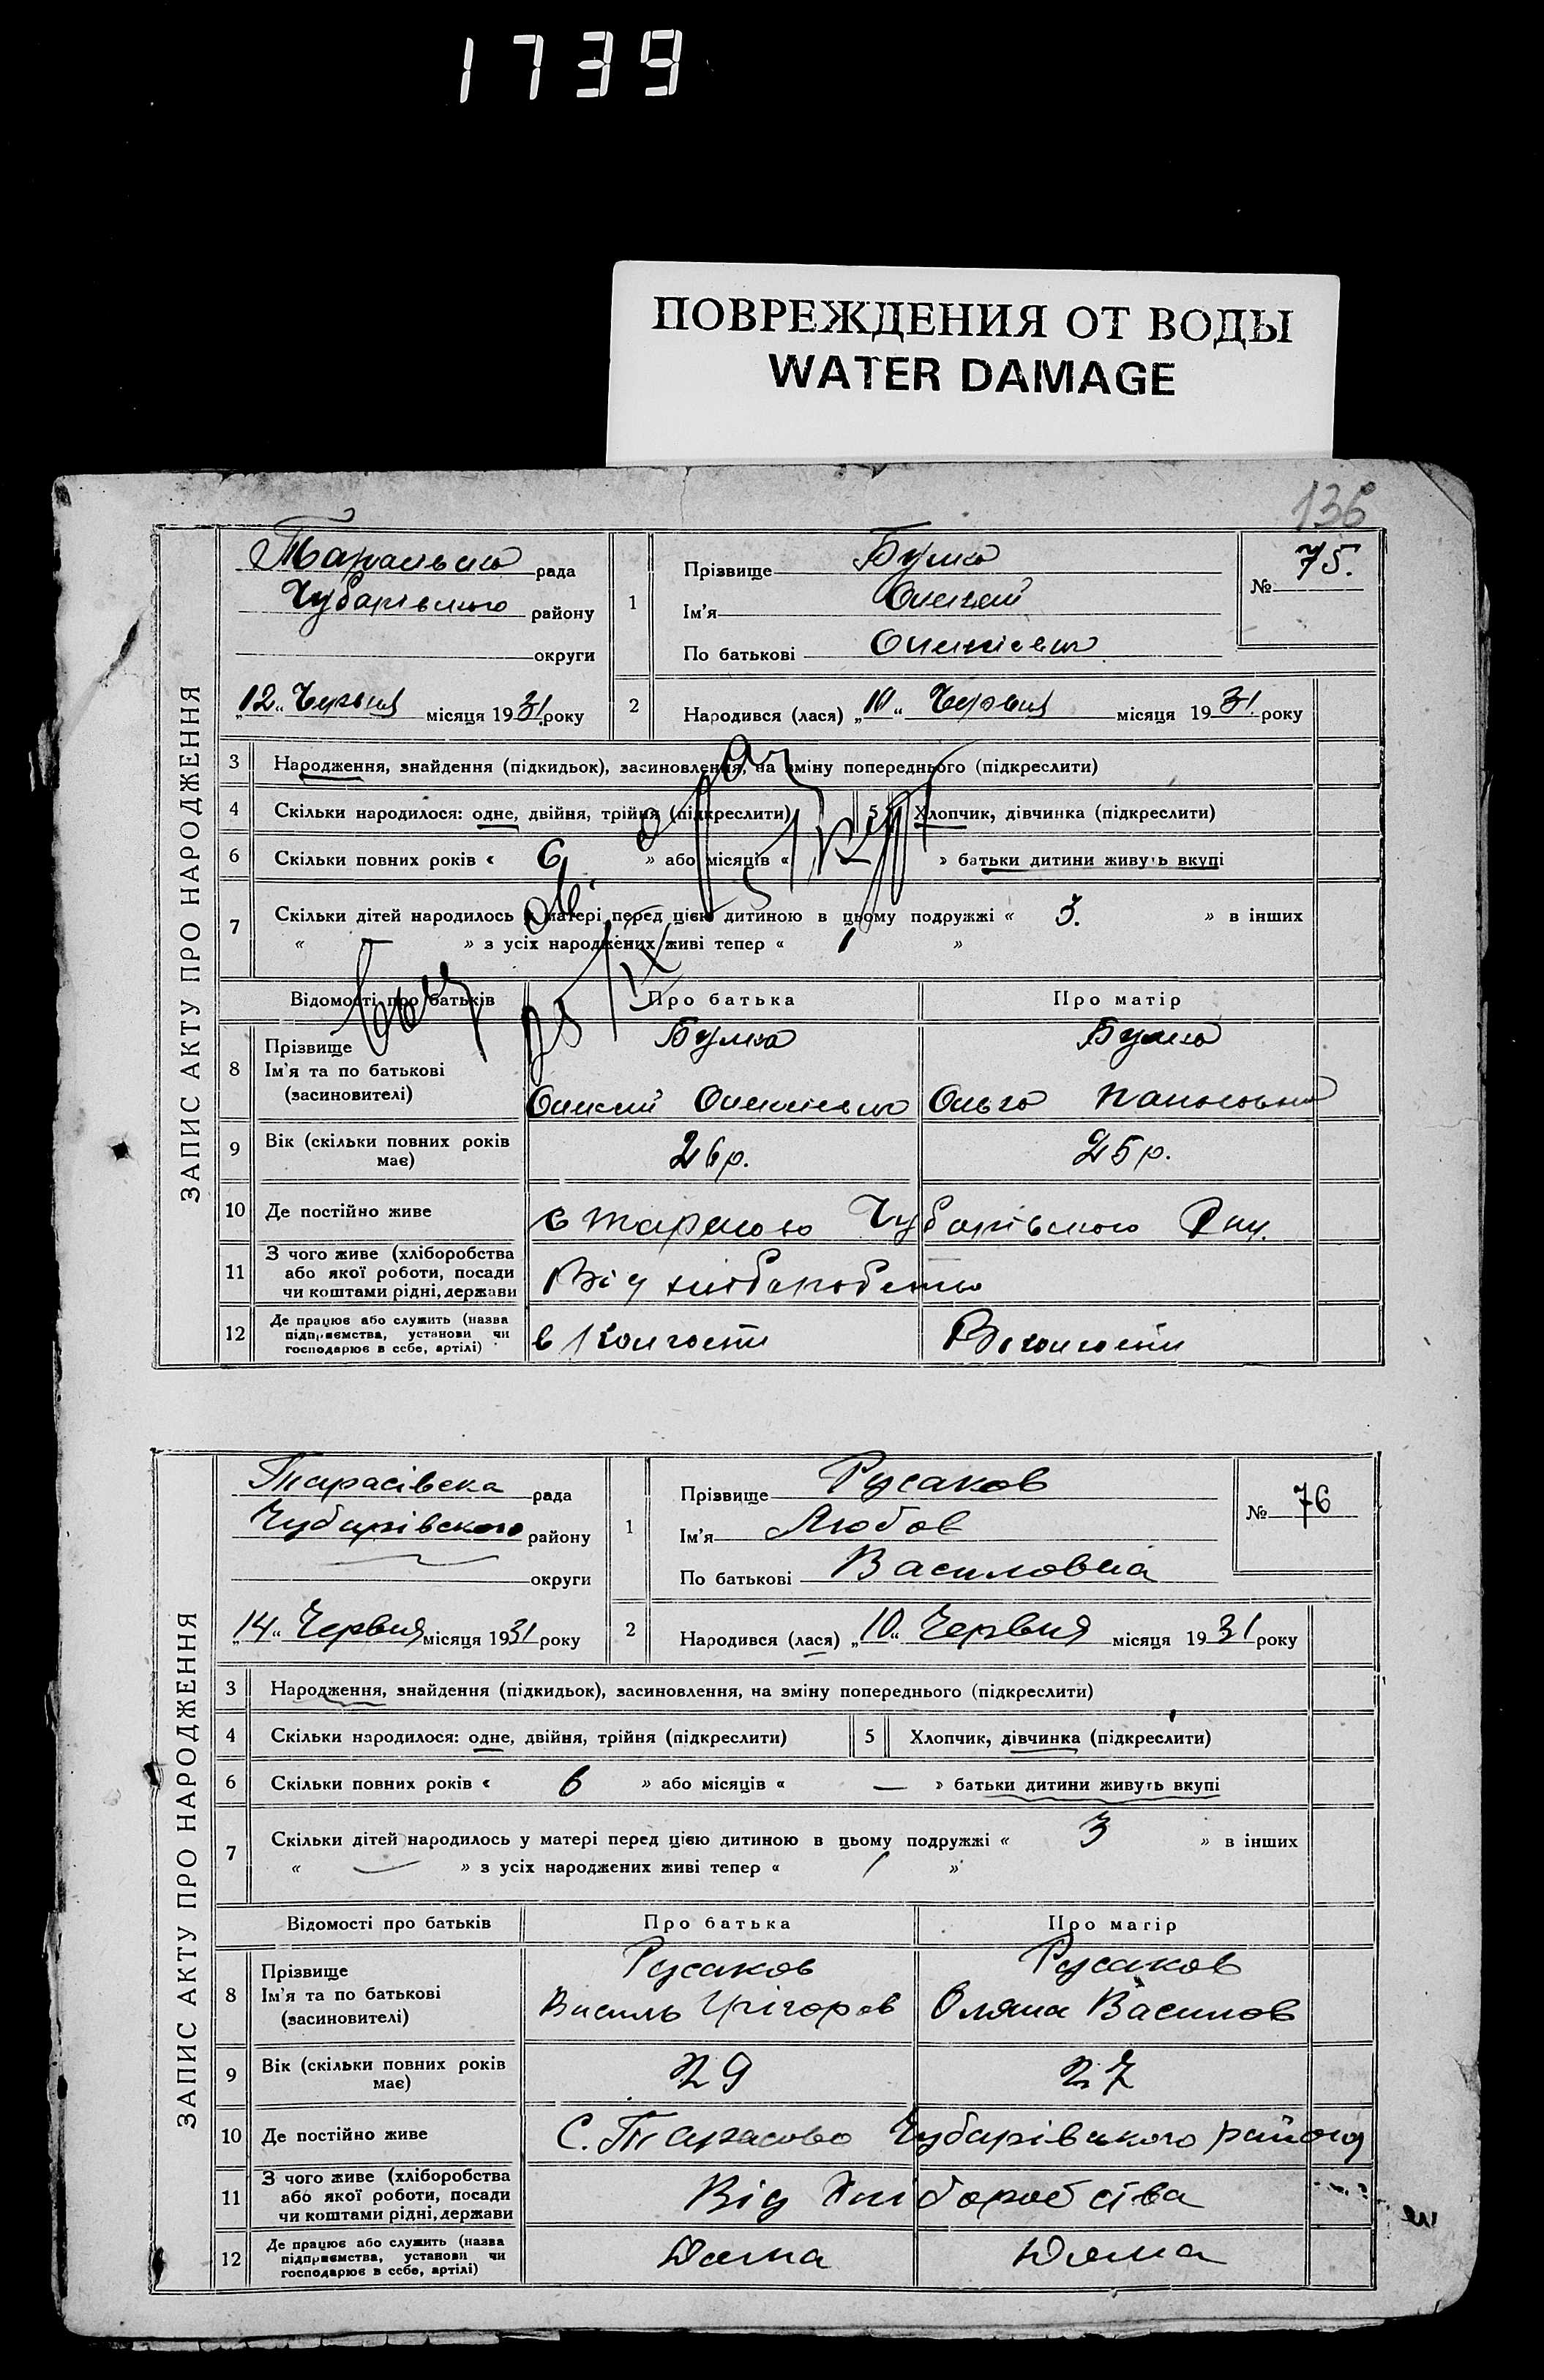 1739
ПОВРЕЖДЕНИЯ ОТ ВОДЫ
WATER DAMAGE
136
ЗАПИС АКТУ ПРО НАРОДЖЕННЯ
рада
Чубарівського району
округи
„12“ Червня місяця 1931 року
1 Прізвище Булка
Ім'я Олексій
По батькові
№ 75.
2 Народився (лася) „10“ Червня місяця 1931. року
3 Народження, знайдення (підкидьок), засиновлення, на зміну попереднього (підкреслити)
4 Скільки народилося: одне, двійня, трійня (підкреслити) 5 Хлопчик, дівчинка (підкреслити)
6 Скільки повних років « 6 » або місяців « » батьки дитини живуть вкупі
7 Скільки дітей народилось у матері перед цією дитиною в цьому подружжі « 3. » в інших
« » з усіх народжених живі тепер « 1 »
Відомості про батьків Про батька Про матір
8 Прізвище Булка Булка
Ім'я та по батькові
(засиновителі) Олексій Ольга
9 Вік (скільки повних років має) 26 р. 25 р.
10 Де постійно живе Чубарівського
11 З чого живе (хліборобства
або якої роботи, посади
чи коштами рідні, держави Від хлібробства
12 Де працює або служить (назва
підприємства, установи чи
господарює в себе, артілі) в Колгоспи В колгоспи
ЗАПИС АКТУ ПРО НАРОДЖЕННЯ
Тарасівска рада
Чубарівского району
округи
„14“ Червня місяця 1931 року
1 Прізвище Русаков
Ім'я Любов
По батькові Василовна
№ 76
2 Народився (лася) „10“ Червня місяця 1931 року
3 Народження, знайдення (підкидьок), засиновлення, на зміну попереднього (підкреслити)
4 Скільки народилося: одне, двійня, трійня (підкреслити) 5 Хлопчик, дівчинка (підкреслити)
6 Скільки повних років « 6 » або місяців « — » батьки дитини живуть вкупі
7 Скільки дітей народилось у матері перед цією дитиною в цьому подружжі « 3 » в інших
« — » з усіх народжених живі тепер « / »
Відомості про батьків Про батька Про матір
8 Прізвище Русаков Русаков
Ім'я та по батькові Василь Грігоров Оляна Василов
(засиновителі)
9 Вік (скільки повних років має) 29 27
10 Де постійно живе С. Тарасово Чубарівського району
11 З чого живе (хліборобства
або якої роботи, посади
чи коштами рідні, держави Від Хлібороб ства
12 Де працює або служить (назва
підприємства, установи чи
господарює в себе, артілі) Дома Дома